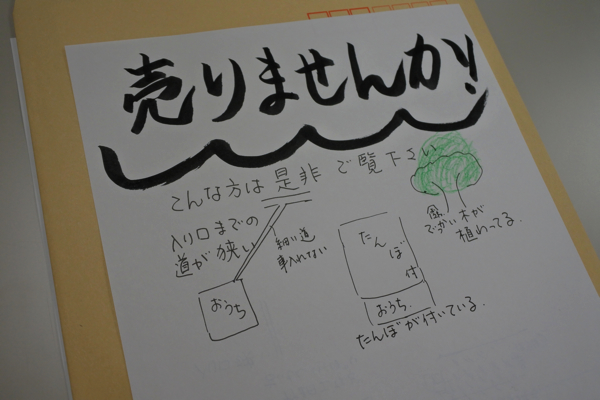 売りませんか!
こんな方は是非ご覧下さい
入り口までの
道が狭い
細い道
車入れない
おうち
たんぼ付
おうち
たんぼが付いている.
でっかい木が
植わってる.